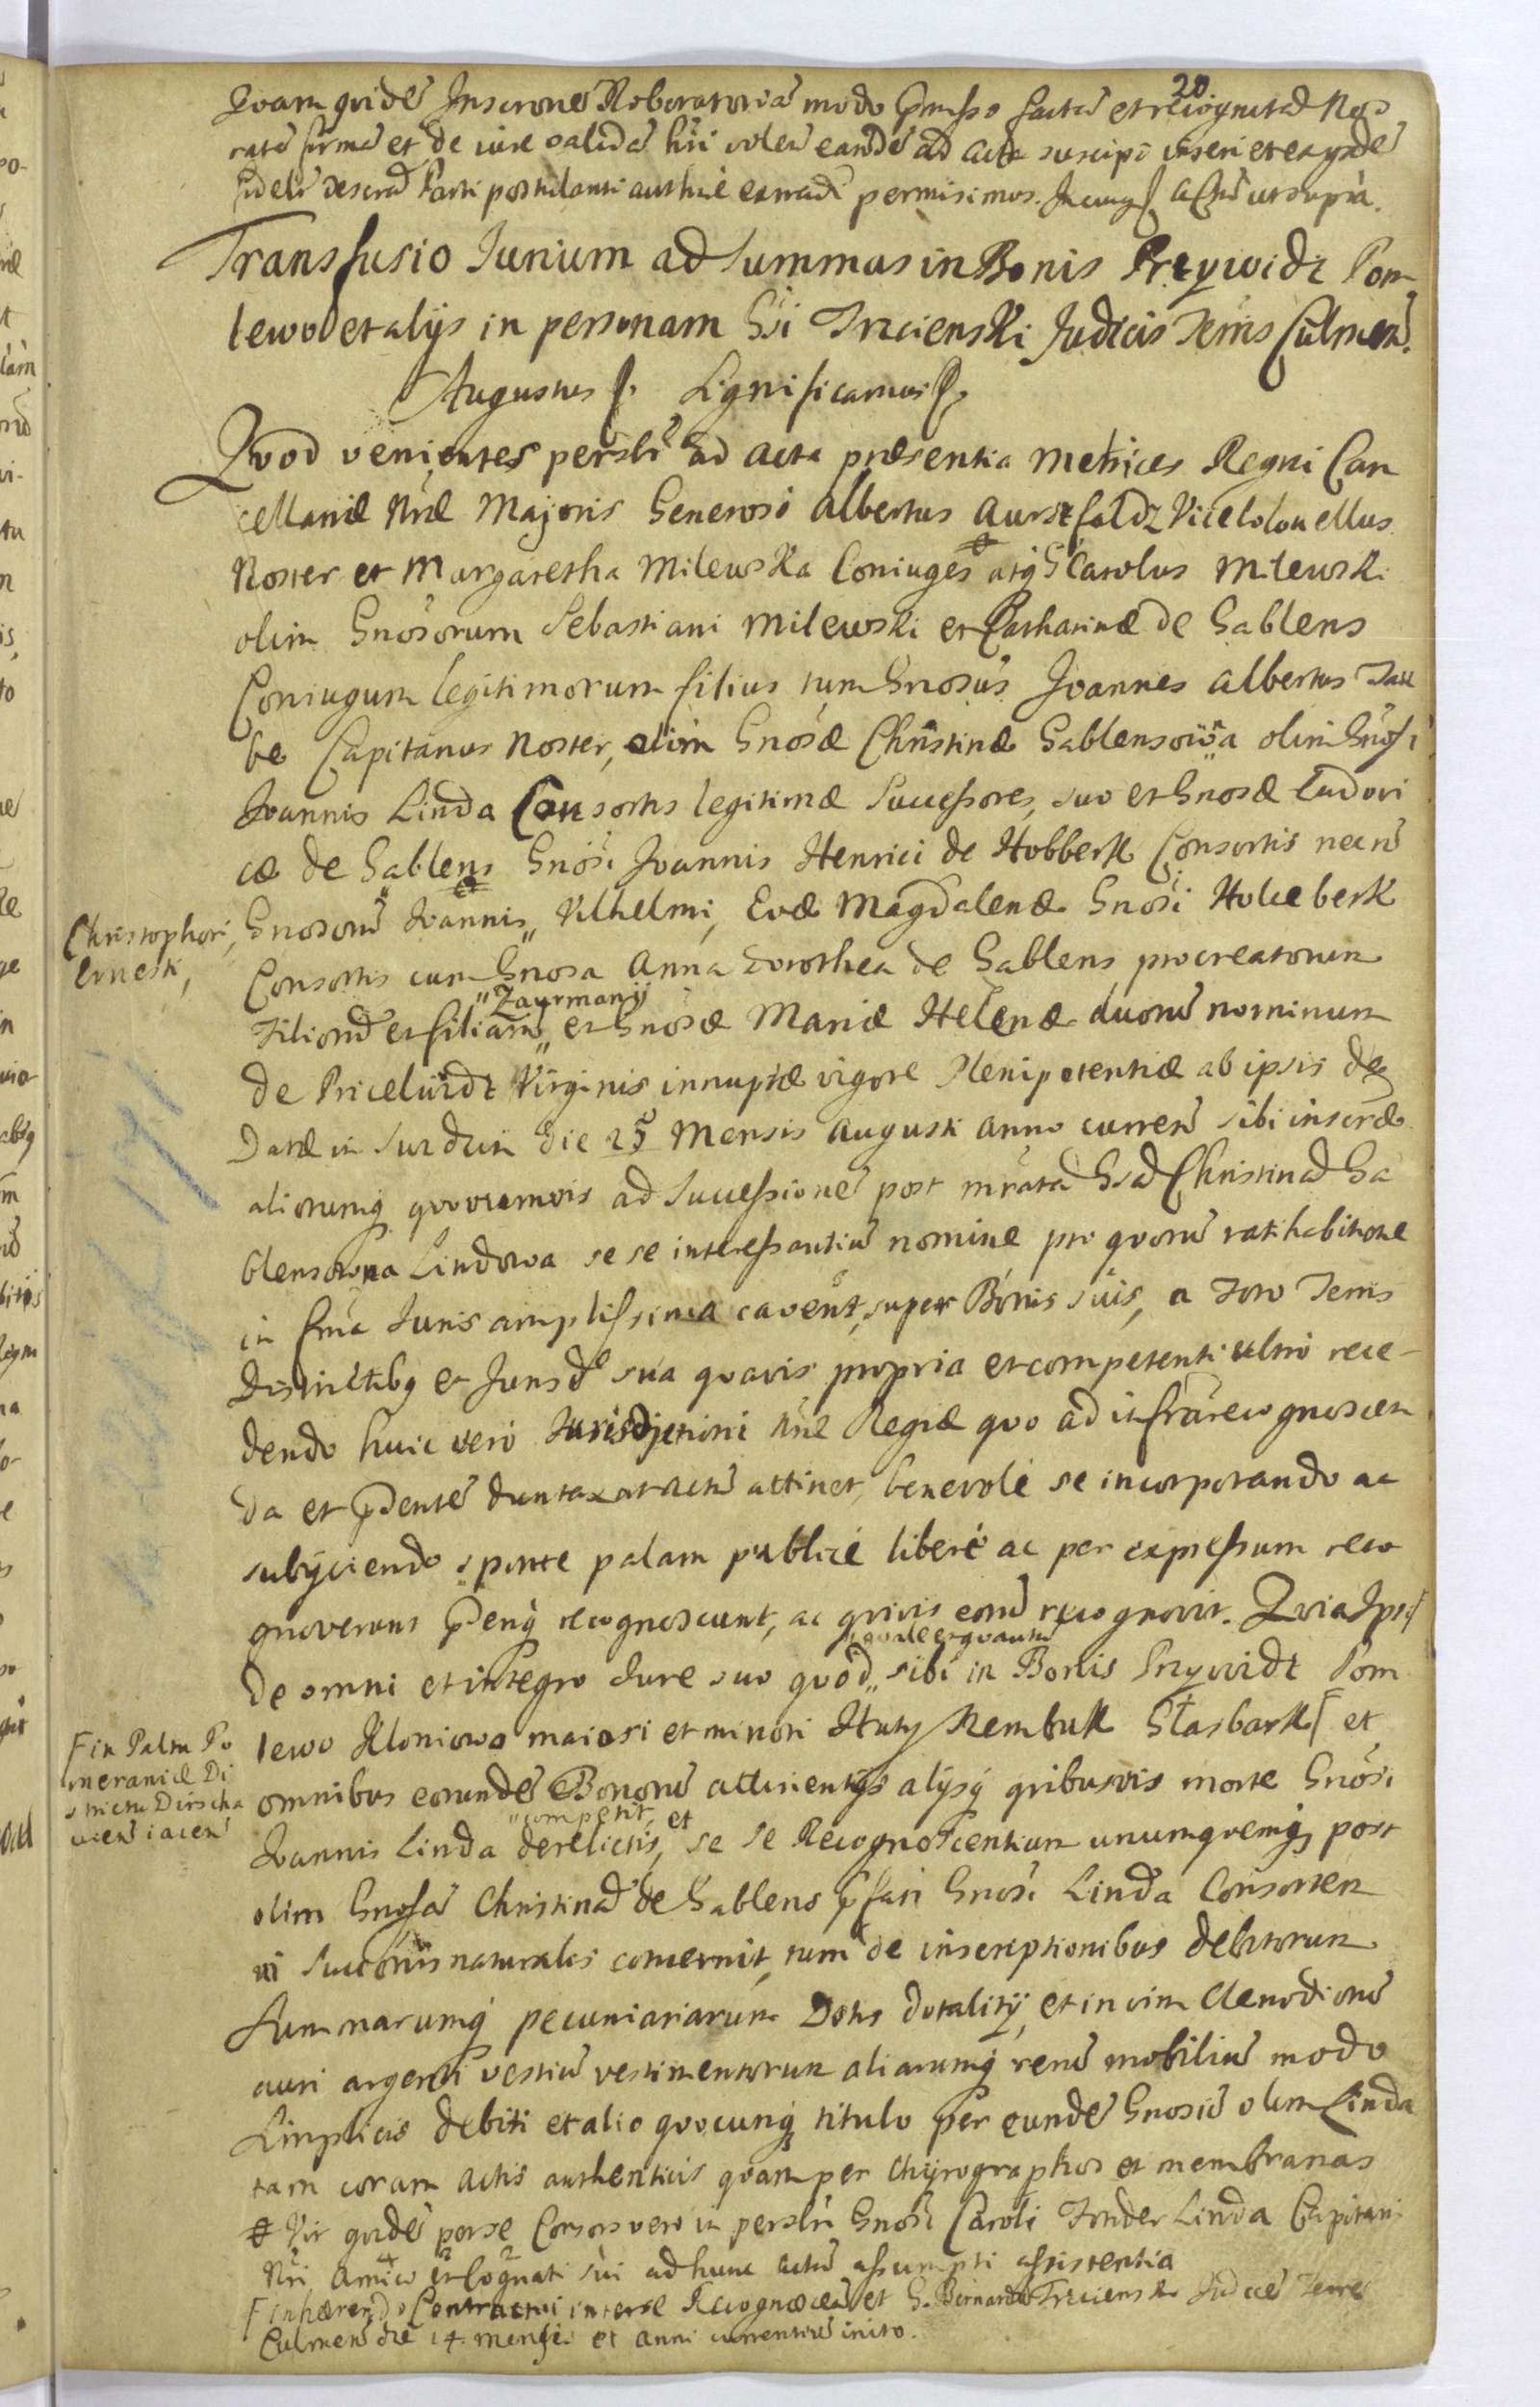 20
Quam quidē Inscrōnē Roboratoriā modo p̄misso factā et recognitā No
ratā firmā et de iure validā hri volen̄ eandē ad acta suscipi inseri et ex ijsdē
fideli descrā Parti postulanti authcè extradi permisimus. In cuius Actū ut supra.
Transfusio Jurium ad Summas in Bonis Przywidz Pom
lewo et alijs in personam Gsi Trzcienski Judicis Terris Culmen.
Augustus Significamus
Quod venientes persłr ad acta præsentia Metrices Regni Can
cellariæ Nræ Majoris Generosi Albertus Aursztfaldz Vicelolonellus
Noster et Margaretha Milewska Coniuges atq G Carolus Milewski
olim Gnosorum Sebastiani Milewski et Catharinæ de Gablens
Coniugum legitimorum filius tum Gnosus Joannes Albertus Tau
be Capitanus Noster, olim Gnosæ Christinæ Gablensowna olim Gnosi
Joannis Linda Consortis legitimæ Successores, suo et Gnosæ Ludovi
cæ de Gablens Gnosi Joannis Henrici de Hobberk Consortis necnō
Christophori,
Ernesti,
Gnosorū Joannis,, Vilhelmi, Evæ Magdalenæ Gnosi Holceberk
Consortis cum Gnosa Anna Dorothea de Gablens procreatorum
,,Zaurmanij
Filiorū et filiarū,, et Gnosæ Mariæ Helenæ duorū nominum
de Pricelwidz Virginis innuptæ vigore Plenipotentiæ ab ipsis de
Datæ in die 25 Mensis Augusti anno curren̄ sibi inseræ
aliorumq quorumvis ad Successionē post mratā Gsā Christinā Ga
blensowna Lindowa se se interessantiū nomine pro quorū ratihabitione
in frma Juris amplissima cavent, super Bonis suis, a Foro Terris
Districtibq et Jurisde sua quavis propria et competenti ultro rece-
dendo huic vero Jurisdictioni Nræ Regiæ quo ad infra recognoscen
da et p̄dentē duntaxat actū attinet, benevolè se incorporando ac
subijciendo sponte palam publicè liberè ac per expressum reco
gnoverunt p̄denq recognoscunt, ac quivis eorū recognovit. Quia Ipsi
,,quale et quantū
de omni et integro Jure suo quod,, sibi in Bonis Przywidz Pom
lewo Kloniowo maiori et minori Huty Rembuk Stasbark et
F in Paltu Po
meraniæ Di
strictu Dirscha
vien̄ iacen̄
omnibus eorundē Bonorū attinentijs alijsq quibusvis morte Gnosi
,,competit, et
Joannis Linda derelictis, se se Recognoscentium unumquemq post
olim Gnosā Christinā de Gablens p̄fati Gnosi Linda Consorten
vi Succōnis naturalis concernit, tum de inscriptionibus debitorum
Summarumq pecuniariarum Dotis dotalitij, et in vim Clenodiorū
auri argenti vestiū vestimentorum aliarumq rerū mobiliū modo
Simplicis debiti et alio quocunq titulo per eundē Gnosū olim Linda
tam coram actis authenticis quam per Chyrographos et membranas
# Vir quidē per se Consors vero in persłri Gnosi Caroli Fonder Linda Capitani
Nri Amici et Cognati sui ad hunc actū assumpti assistentia
F inhærendo Contractui inter se Recognoscen̄ et G. Bernardū Trzcienski Judicē Terre
Culmen̄ die 14 mensis et anni currentiū inito.